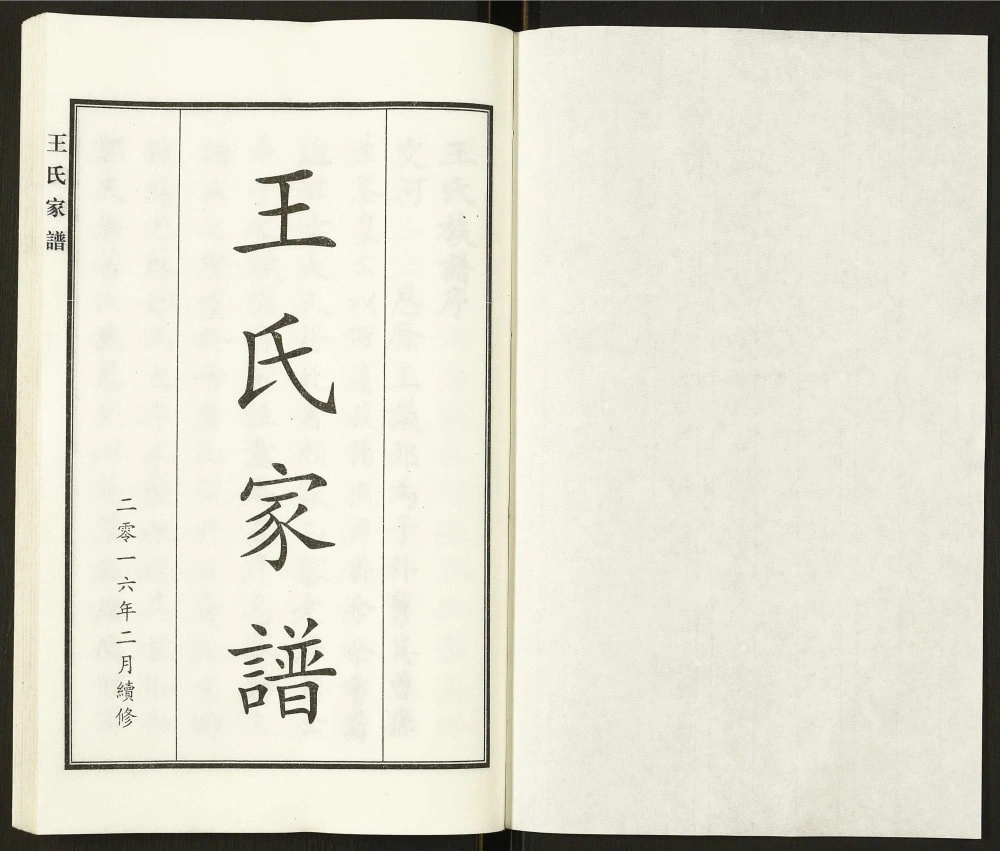 王氏家譜
二零一六年二月續修
王氏家譜